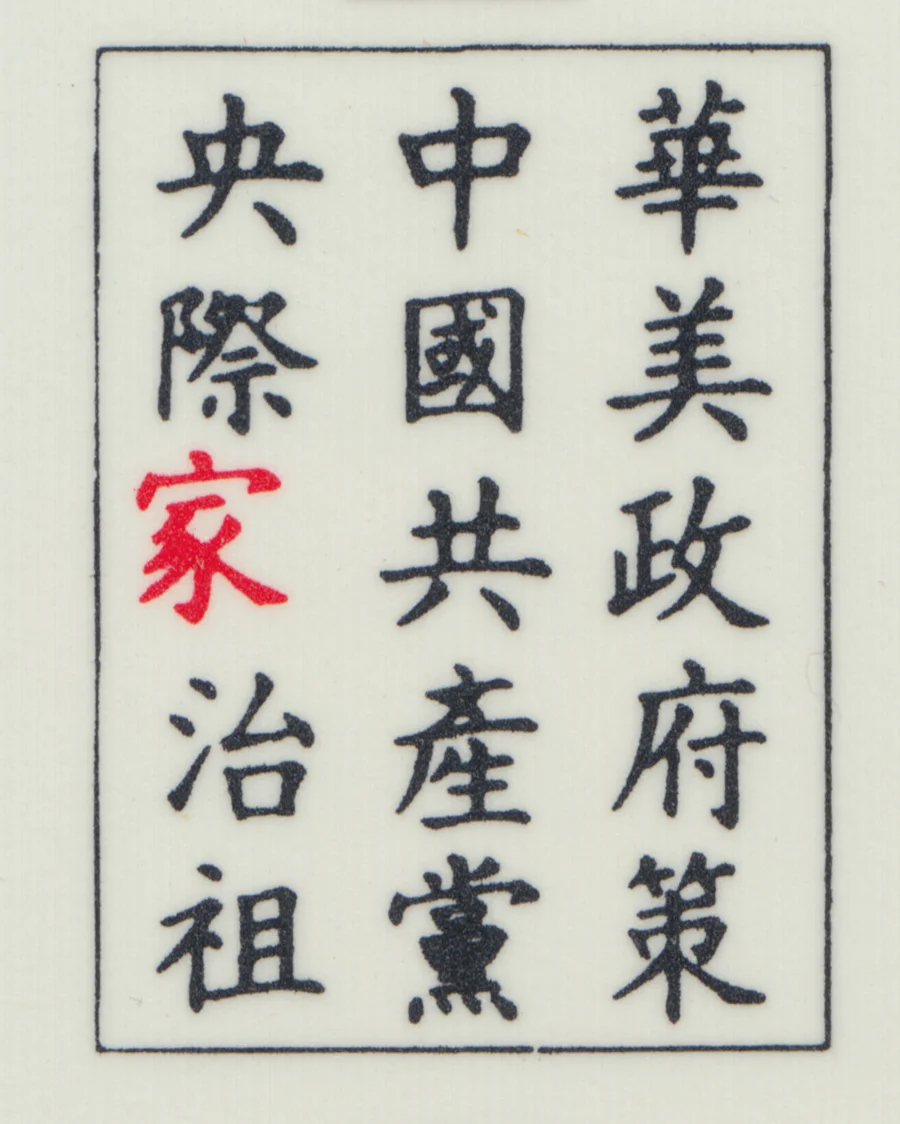 華美政府策
中國共產黨
央際家治祖